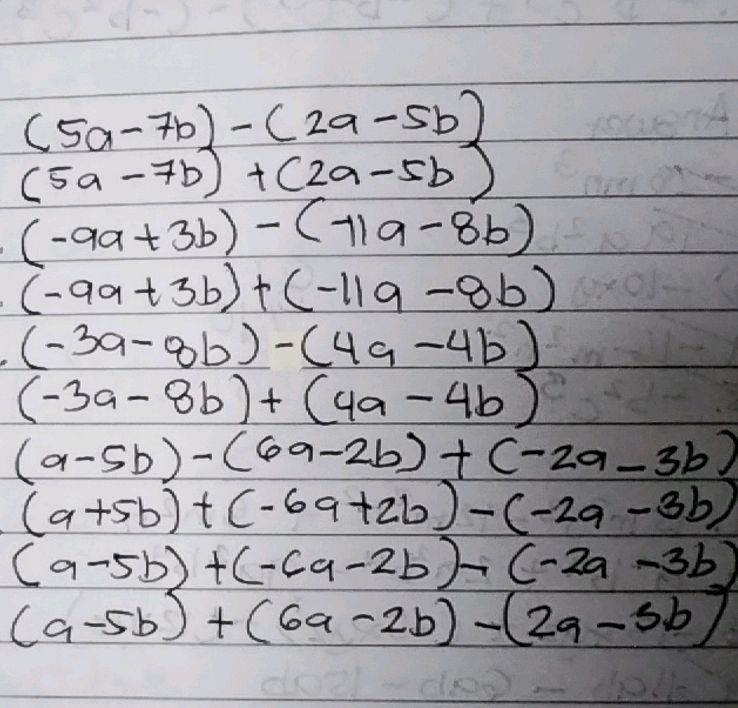 (5a-7b)-(2a-5b)
(5a-7b)+(2a-5b)
(-9a+3b)-(-11a-8b)
(-9a+3b)+(-11a-8b)
(-3a-8b)-(4a-4b)
(-3a-8b)+(4a-4b)
(a-5b)-(6a-2b)+(-2a-3b)
(a+5b)+(-6a+2b)-(-2a-3b)
(a-5b)+(-6a-2b)-(-2a-3b)
(a-5b)+(6a-2b)-(2a-3b)